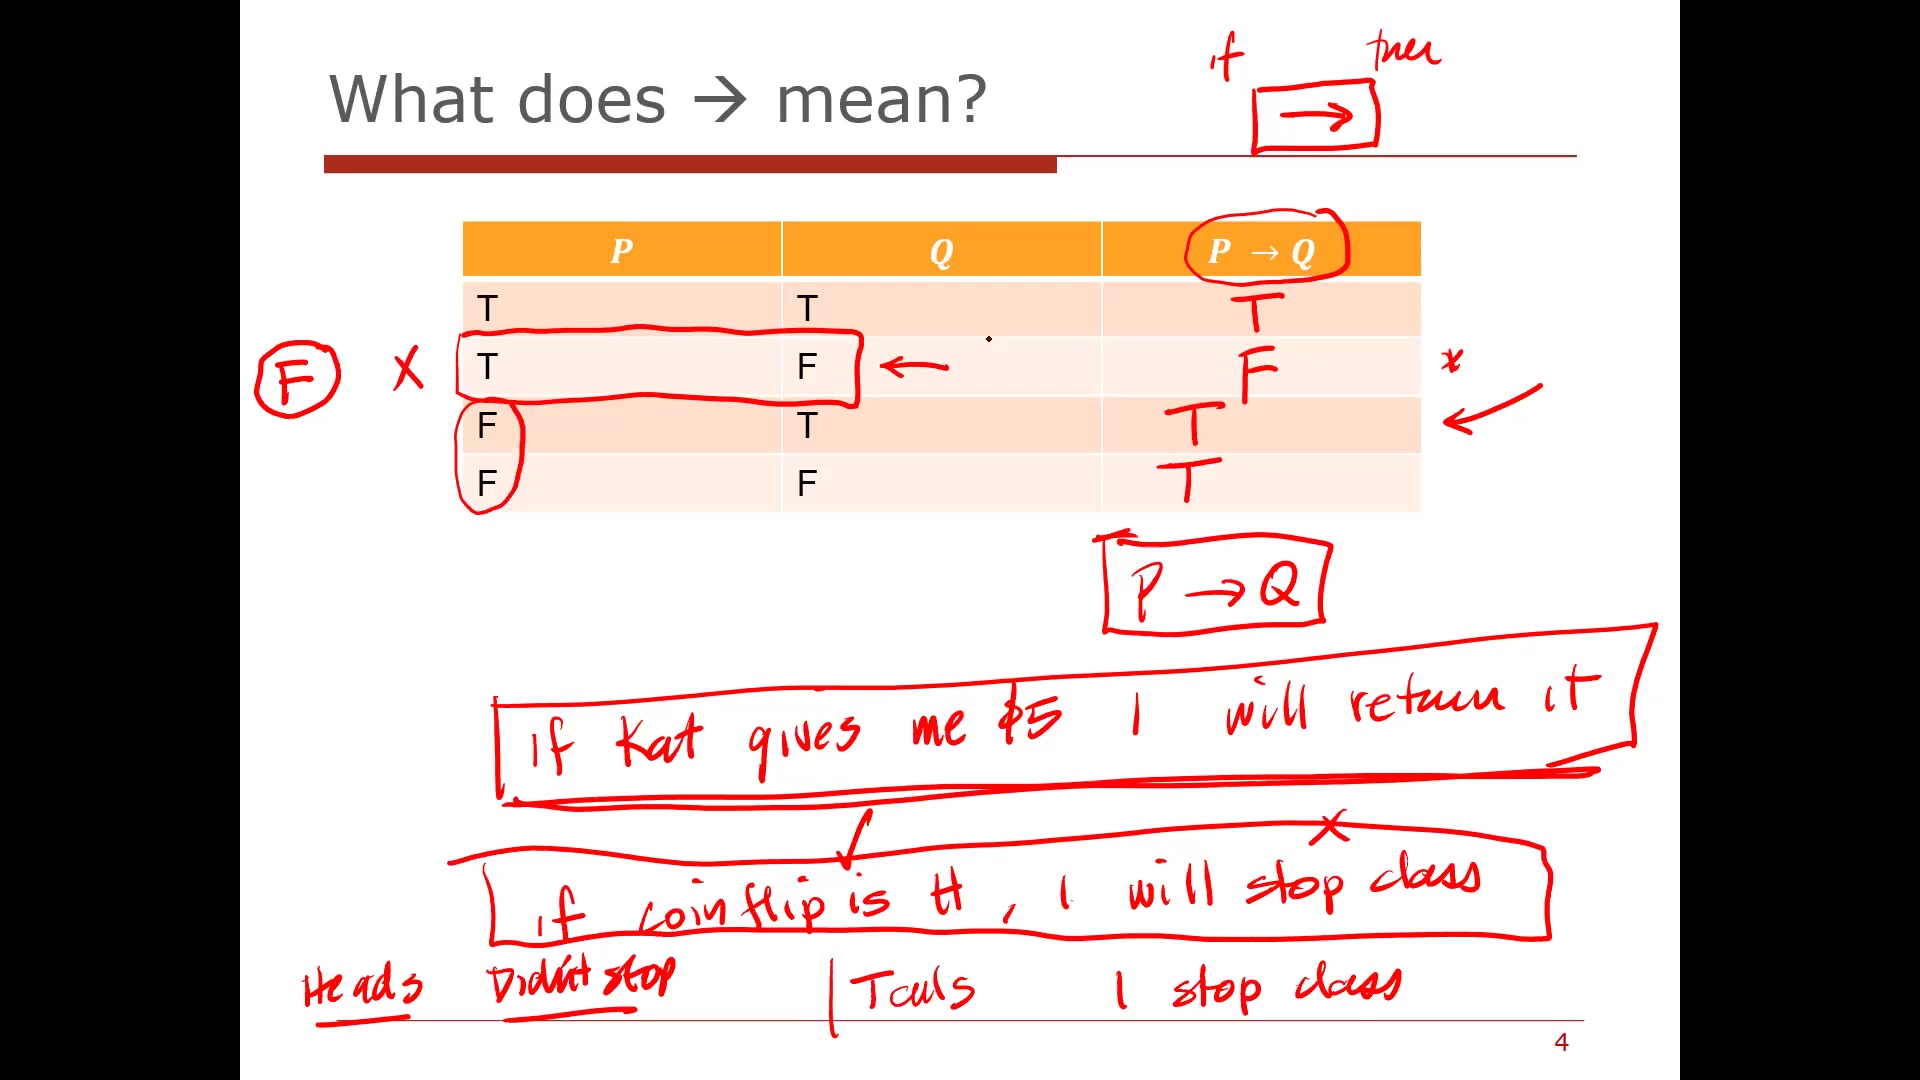 if then
What does → mean?
→
P Q P → Q
T T T
F X T F ← F *
F T T ←
F F T
P → Q
if Kat gives me $5 I will return it
✓ X
if coin flip is H, I will stop class
Heads Didn't stop | Tails I stop class
4